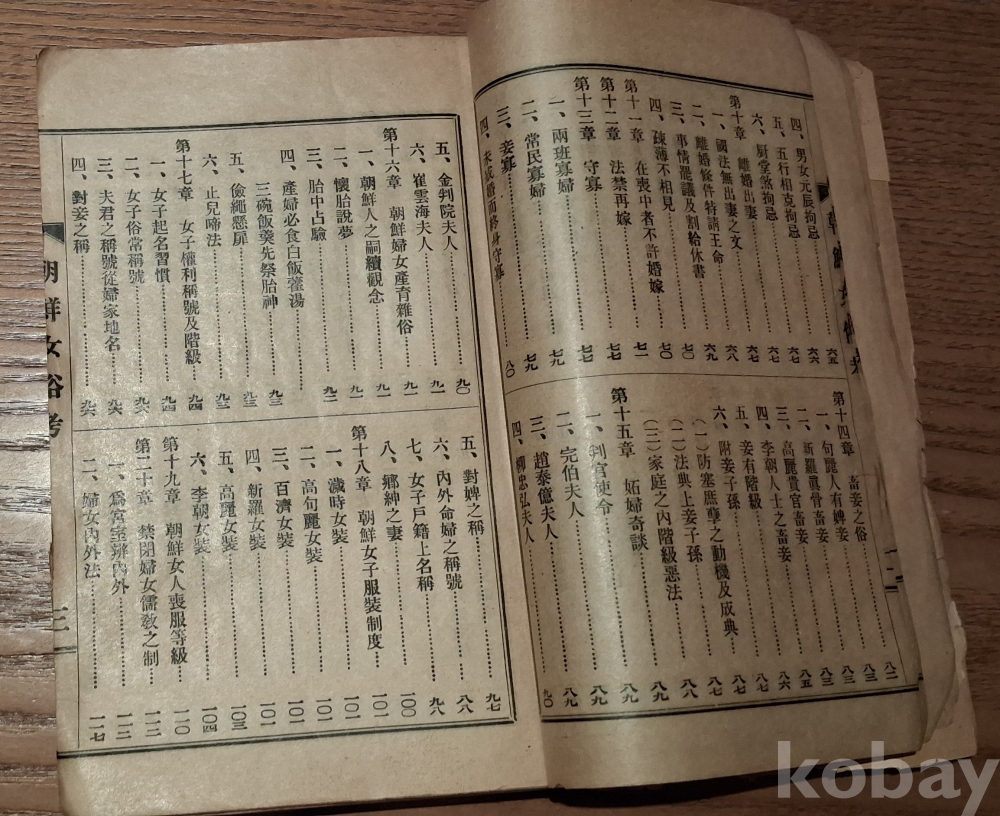 朝鮮女俗考
二
四、男女元辰拘忌……六五
五、五行相克拘忌……六六
六、厨堂煞拘忌……六七
第十章 離婚出妻……六七
一、國法無出妻之文……六七
二、離婚條件特請王命……六八
三、事情罷議及割給休書……六九
四、疎薄不相見……七〇
第十一章 在喪中者不許婚嫁……七〇
第十二章 法禁再嫁……七一
第十三章 守寡……七七
一、兩班寡婦……七七
二、常民寡婦……七九
三、妾寡……七九
四、未成婚而終身守寡……八〇
第十四章 畜妾之俗……八二
一、句麗人有婢妾……八三
二、新羅眞骨畜妾……八三
三、高麗貴官畜妾……八三
四、李朝人士之畜妾……八五
五、妾有階級……八六
六、附妾子孫……八七
(一)防塞庶孽之動機及成典……八七
(二)法典上妾子孫……八七
(三)家庭之內階級惡法……八八
第十五章 妬婦奇談……八九
一、判官使令……八九
二、完伯夫人……八九
三、趙泰億夫人……八九
四、柳忠弘夫人……九〇
五、金判院夫人……九〇
六、崔雲海夫人……九一
第十六章 朝鮮婦女產育雜俗……九一
一、朝鮮人之嗣續觀念……九一
二、懷胎說夢……九一
三、胎中占驗……九二
四、產婦必食白飯藿湯
三碗飯羹先祭胎神……九三
五、儉繩懸扉……九三
六、止兒啼法……九三
第十七章 女子權利稱號及階級……九四
一、女子起名習慣……九四
二、女子俗常稱號……九六
三、夫君之稱號從婦家地名……九六
四、對妾之稱……九六
五、對婢之稱……九七
六、內外命婦之稱號……八八
七、女子戶籍上名稱……九八
八、鄉紳之妻……一〇〇
第十八章 朝鮮女子服裝制度……一〇一
一、濊時女裝……一〇一
二、高句麗女裝……一〇一
三、百濟女裝……一〇一
四、新羅女裝……一〇一
五、高麗女裝……一〇三
六、李朝女裝……一〇四
第十九章 朝鮮女人喪服等級……一一〇
第二十章 禁閉婦女儒敎之制……一一三
一、爲宮室辨內外……一一三
二、婦女內外法……一一七
朝鮮女俗考
三
kobay